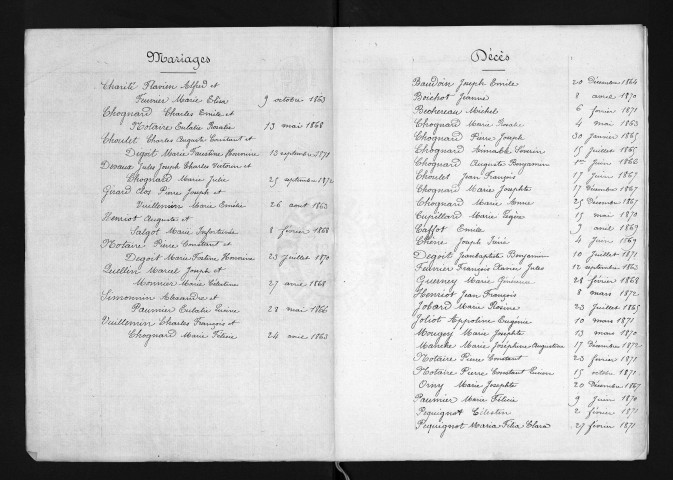 Mariages
Charité Flavien Alfred et
Feuvrier Marie Elisa 9 octobre 1863
Chognard Charles Emile et
Notaire Eulalie Rosalie 13 mai 1868
Choulet Charles Auguste Constant et
Degoit Marie Faustine Philomène 13 septembre 1871
Devaux Jules Joseph Charles Victorin et
Chognard Marie Julie 25 septembre 1872
Girard Clos Pierre Joseph et
Vuillemin Marie Emélie 26 aout 1863
Henriot Auguste et
Salgot Marie 8 février 1868
Notaire Pierre Constant et
Degoit Marie Justine Philomène 23 Juillet 1870
Quellin Marcel Joseph et
Monnier Marie Célestine 27 avril 1868
Simonnin Alexandre et
Paumier Eulalie 28 mai 1866
Vuillemin Charles François et
Chognard Marie Félicie 24 avril 1863
Décès
Baudoin Joseph Emile 20 Décembre 1864
Boichot Jeanne 8 avril 1870
Bechereau Michel 6 février 1871
Chognard Marie Rosalie 4 mai 1863
Chognard Pierre Joseph 30 Janvier 1865
Chognard Aimable 15 Juillet 1865
Chognard Auguste Benjamin 1er Juin 1866
Choulet Jean François 17 Juin 1867
Chognard Marie Josephte 17 Décembre 1867
Chognard Marie Anne 25 Décembre 1867
Cupillard Marie 15 mai 1870
Caffot Emile 9 avril 1869
Chêne Joseph 4 Juin 1869
Degoit Jeanbaptiste Benjamin 10 Juillet 1871
Feuvrier François Xavier Jules 12 septembre 1863
Guerney Marie 28 février 1868
Henriot Jean François 8 mars 1872
Jobard Marie Rosine 23 Juillet 1865
Joliot Appoline Eugénie 10 mars 1871
Mougey Marie Josephte 13 mars 1870
Marie Joséphine Augustine 17 Décembre 1872
Notaire Pierre Constant 23 février 1871
Notaire Pierre Constant 15 octobre 1871
Orny Marie Josephte 20 Décembre 1867
Paumier Marie Félicie 9 Juin 1870
Pequignot Célestin 2 février 1871
Pequignot Maria Félix Clara 27 février 1871